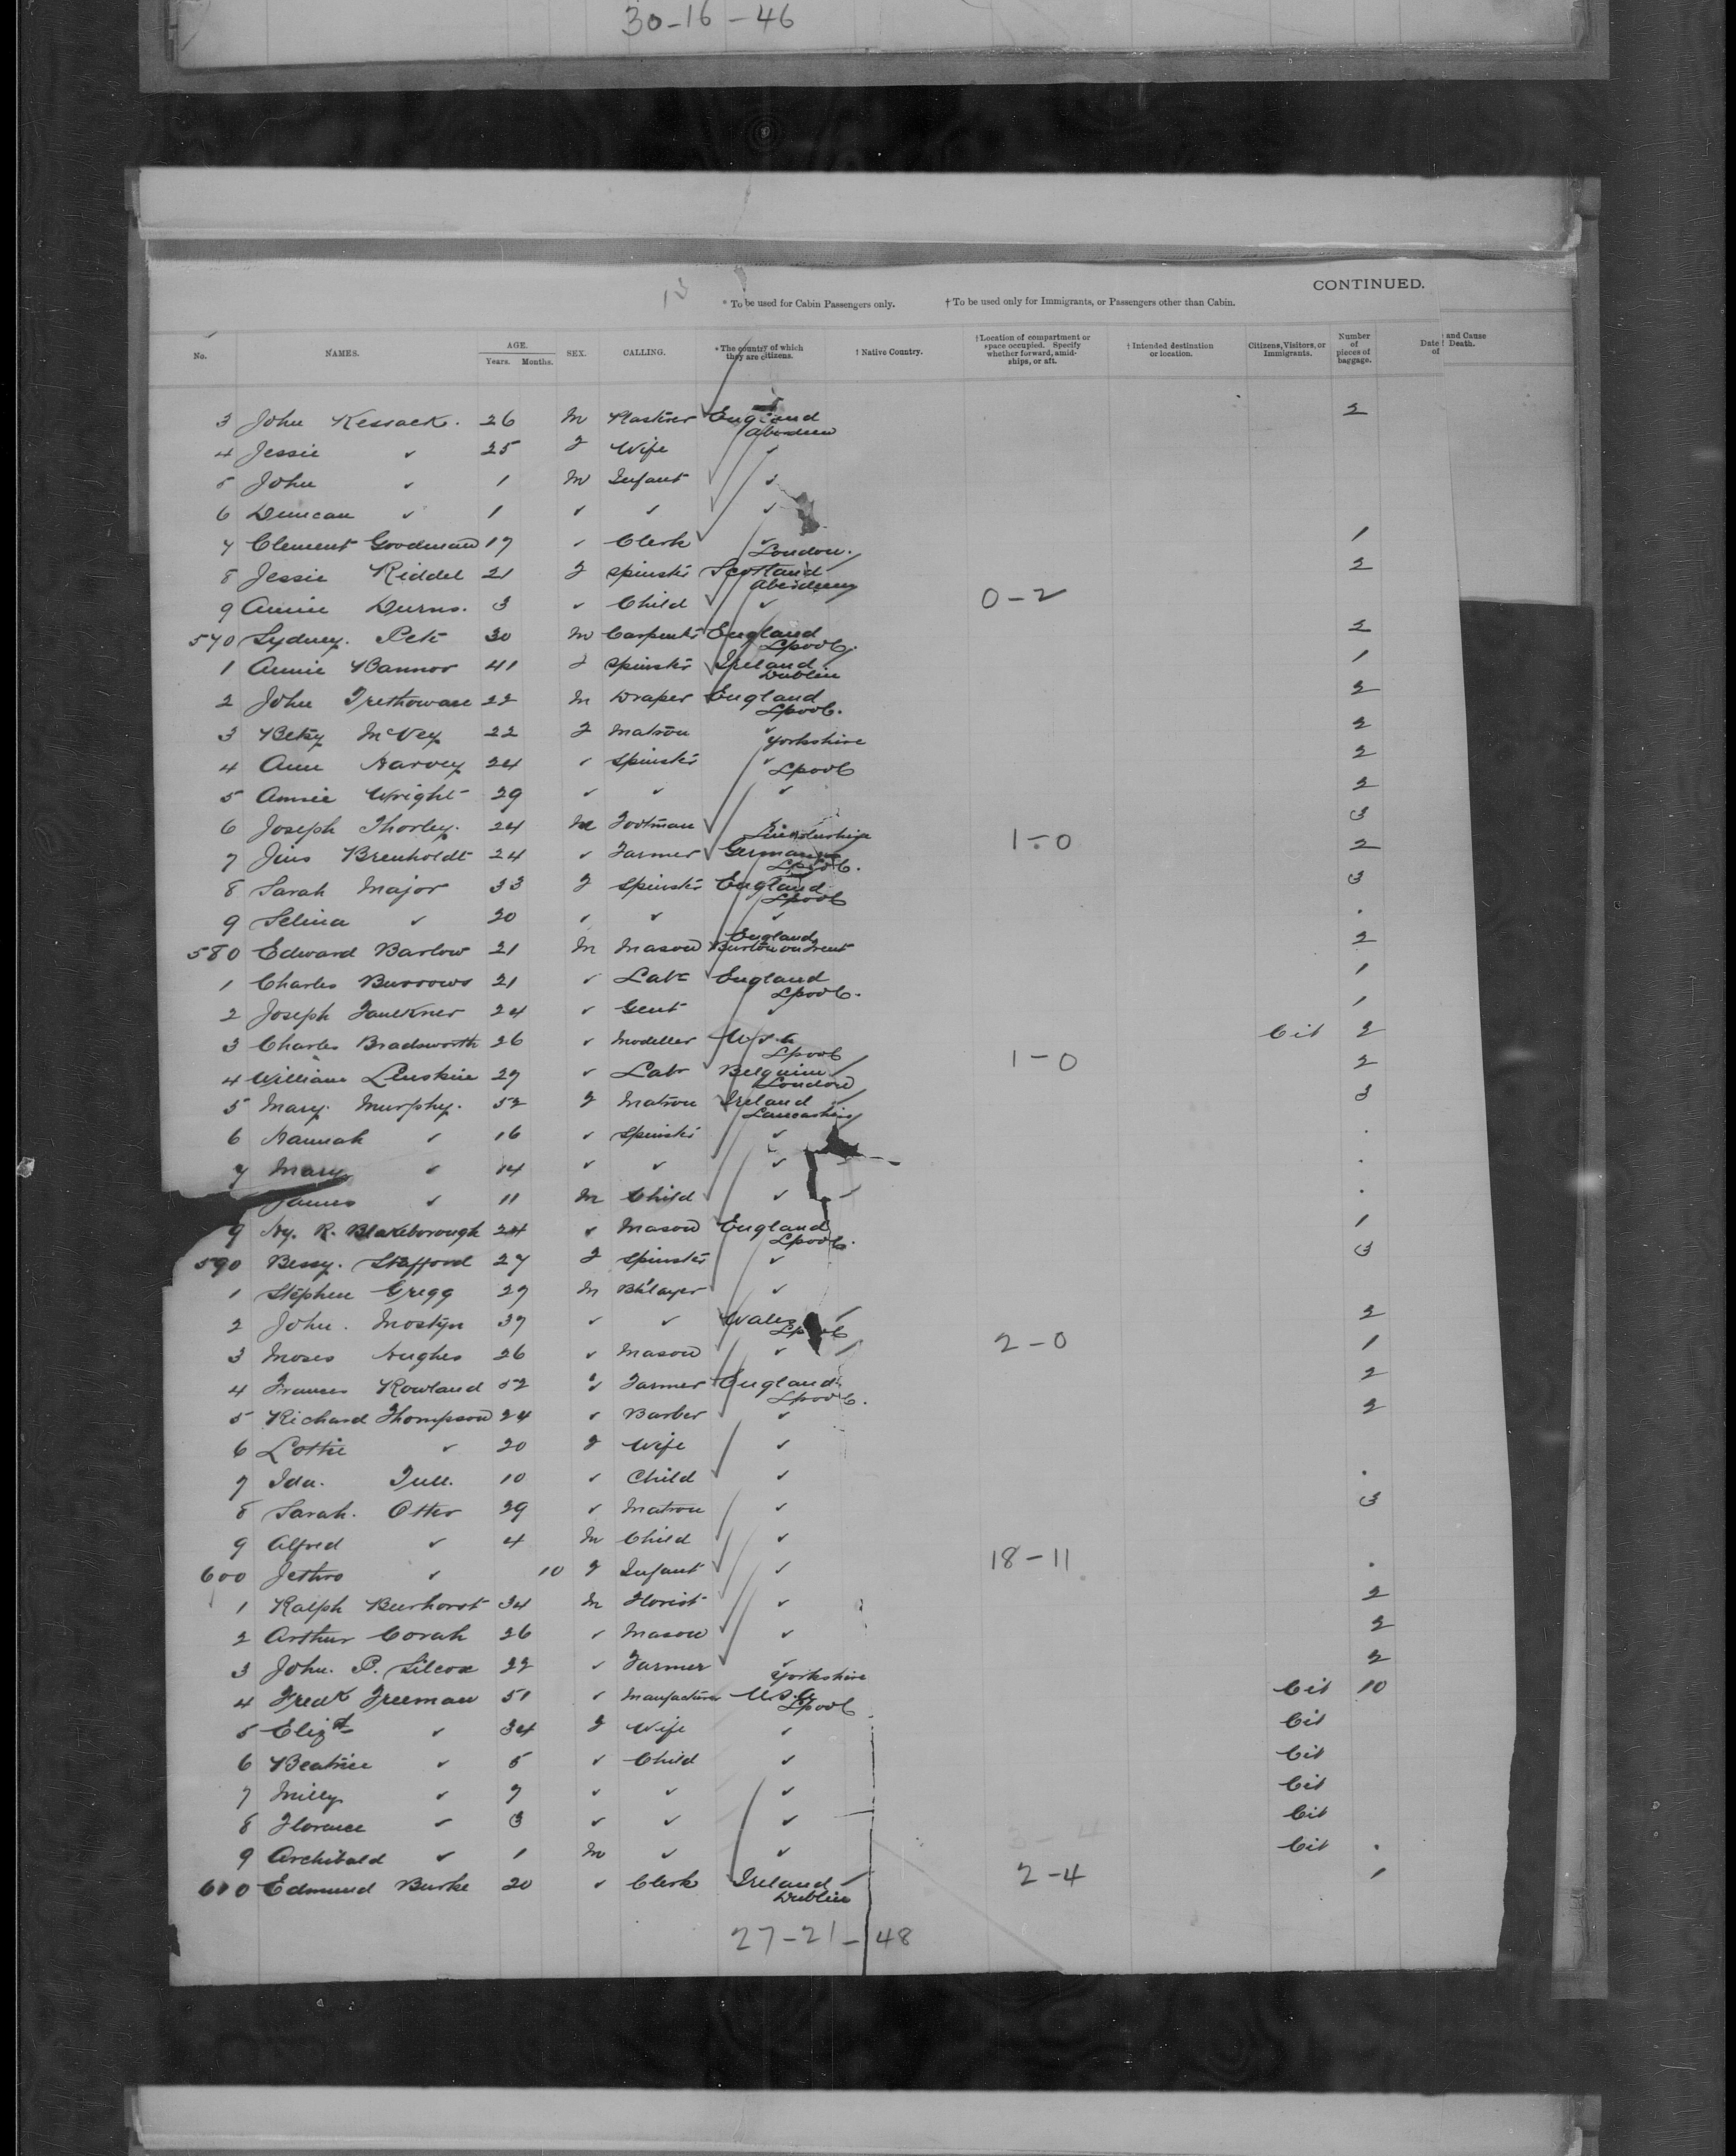 30-16-46
CONTINUED.
13
* To be used for Cabin Passengers only. † To be used only for Immigrants, or Passengers other than Cabin.
No. NAMES. AGE. Years. Months. SEX. CALLING. * The country of which they are citizens. † Native Country. † Location of compartment or space occupied. Specify whether forward, amidships, or aft. † Intended destination or location. Citizens, Visitors, or Immigrants. Number of pieces of baggage. Date of and Cause Death.
3 John Kessack. 26 M Plasterer England Aberdeen 2
4 Jessie ✓ 25 F Wife ✓
5 John ✓ 1 M Infant ✓
6 Duncan ✓ 1 ✓ ✓ ✓
7 Clement Goodman 17 ✓ Clerk ✓ London. 1
8 Jessie Riddel 21 F Spinster Scotland Aberdeen 2
9 Annie Durno. 3 ✓ Child ✓ 0-2
570 Sydney. Pete 30 M Carpenter England Lpool. 2
1 Annie Bannor 41 F Spinster Ireland Dublin 1
2 John Trethowan 22 M Draper England Lpool. 2
3 Betsy McVey 22 F Matron ✓ Yorkshire 2
4 Ann Harvey 24 ✓ Spinster ✓ Lpool 2
5 Annie Wright 29 ✓ ✓ ✓ 2
6 Joseph Thorley. 24 M Footman Lincolnshire 3
7 Jins Brenholdt 24 ✓ Farmer Germany Lpool. 1-0 2
8 Sarah Major 33 F Spinster England Lpool 3
9 Selina ✓ 20 ✓ ✓ ✓ .
580 Edward Barlow 21 M Mason England Burton on Trent 2
1 Charles Burrows 21 ✓ Labr England Lpool. 1
2 Joseph Faulkner 24 ✓ Gent ✓ 1
3 Charles Bradsworth 26 ✓ Modeller U.S.A Lpool Cit 2
4 William 27 ✓ Labr Belguim London 1-0 2
5 Mary. Murphy. 52 F Matron Ireland Lancashire 3
6 Hannah ✓ 16 ✓ Spinster ✓ .
7 Mary ✓ 14 ✓ ✓ ✓ .
James ✓ 11 M Child ✓ .
9 Hy. R. Blakeborough 24 ✓ Mason England Lpool. 1
590 Bessy. Stafford 27 F Spinster ✓ 3
1 Stephen Gregg 27 M Bklayer ✓
2 John. Mostyn 37 ✓ ✓ Wales Lpool 2
3 Moses Hughes 26 ✓ Mason ✓ 2-0 1
4 Frances Rowland 52 ✓ Farmer England Lpool. 2
5 Richard Thompson 24 ✓ Barber ✓ 2
6 Lottie ✓ 20 F Wife ✓
7 Ida. Tull. 10 ✓ Child ✓ .
8 Sarah. Otter 29 ✓ Matron ✓ 3
9 Alfred ✓ 4 M Child ✓
600 Jethro ✓ 10 F Infant ✓ 18-11 .
1 Ralph Burhorst 34 M Florist ✓ 2
2 Arthur Corah 26 ✓ Mason ✓ 2
3 John. P. Silcox 22 ✓ Farmer ✓ Yorkshire 2
4 Fredk Freeman 51 ✓ Manufacturer U.S.A. Lpool Cit 10
5 Elizth ✓ 34 F Wife ✓ Cit
6 Beatrice ✓ 5 ✓ Child ✓ Cit
7 Milly ✓ 7 ✓ ✓ ✓ Cit
8 Florence ✓ 3 ✓ ✓ ✓ Cit
9 Archibald ✓ 1 M ✓ ✓ Cit .
610 Edmund Burke 20 ✓ Clerk Ireland Dublin 2-4 1
27-21-48